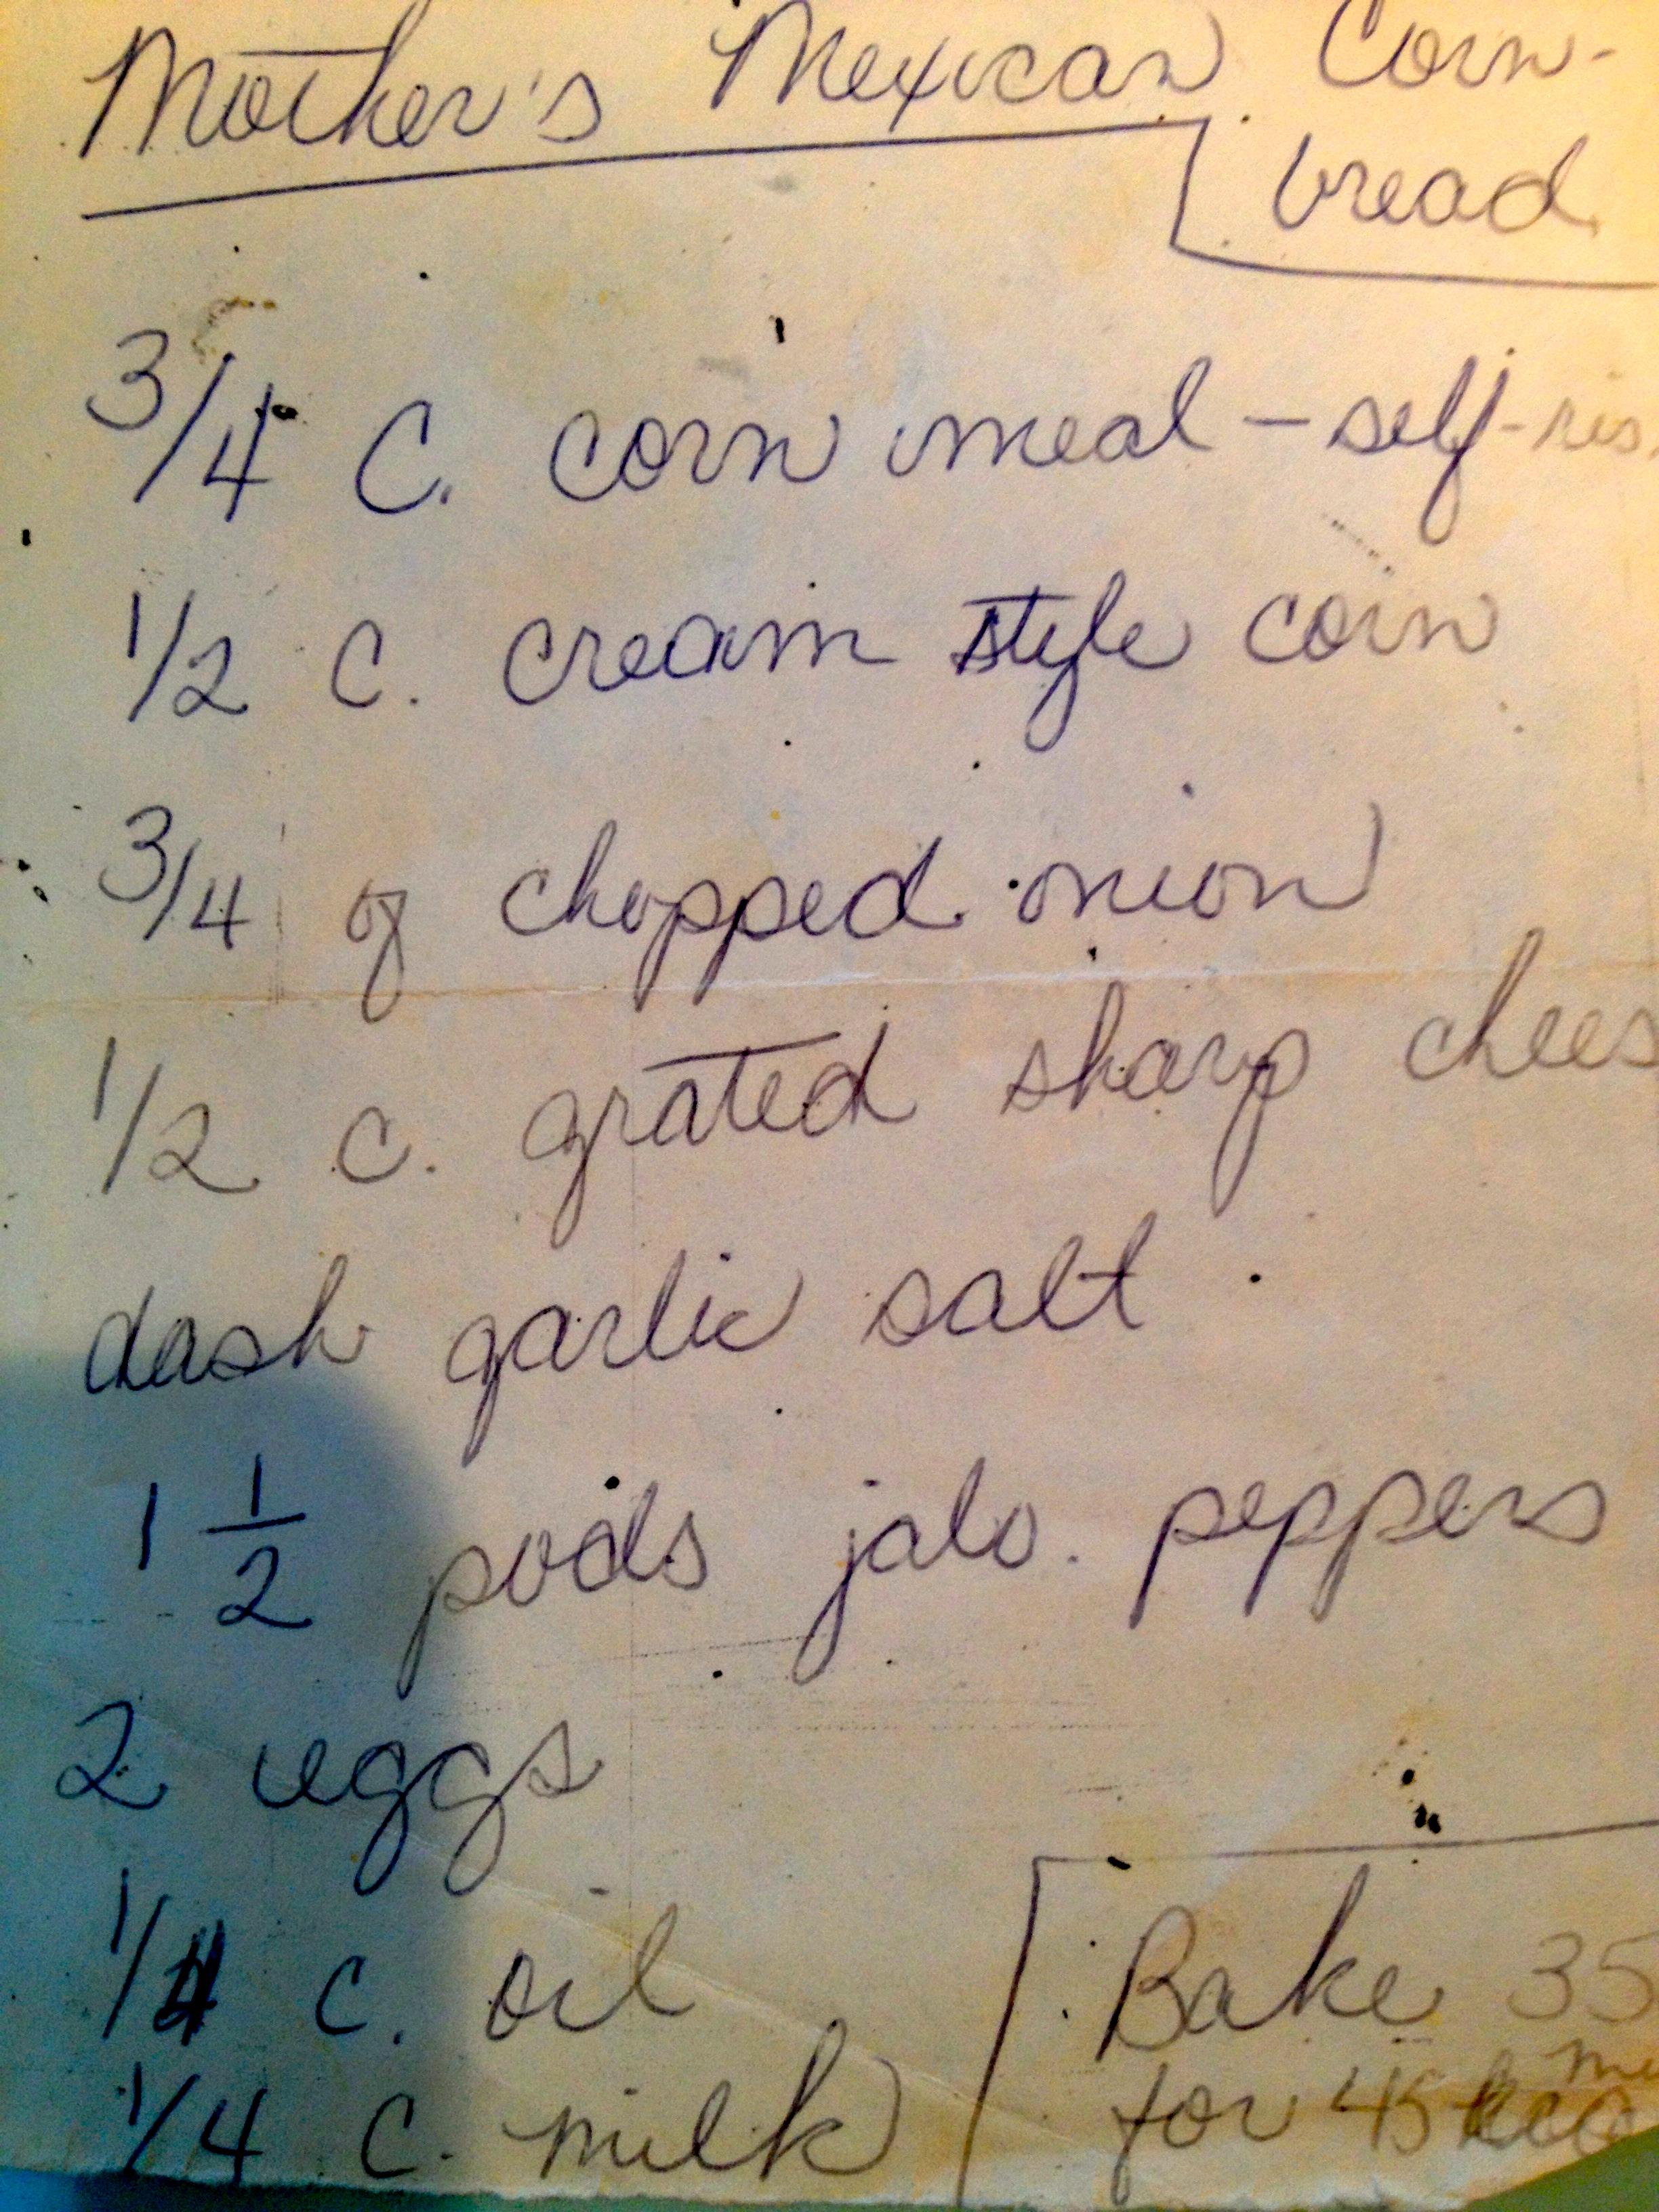 Mother's Mexican Corn-
bread
3/4 C. corn meal - self-ris.
1/2 C. cream style corn
3/4 of chopped onion
1/2 c. grated sharp chees
dash garlic salt
1 1/2 pods jalo. peppers
2 eggs
1/4 c. oil
1/4 c. milk
Bake 35
for 45